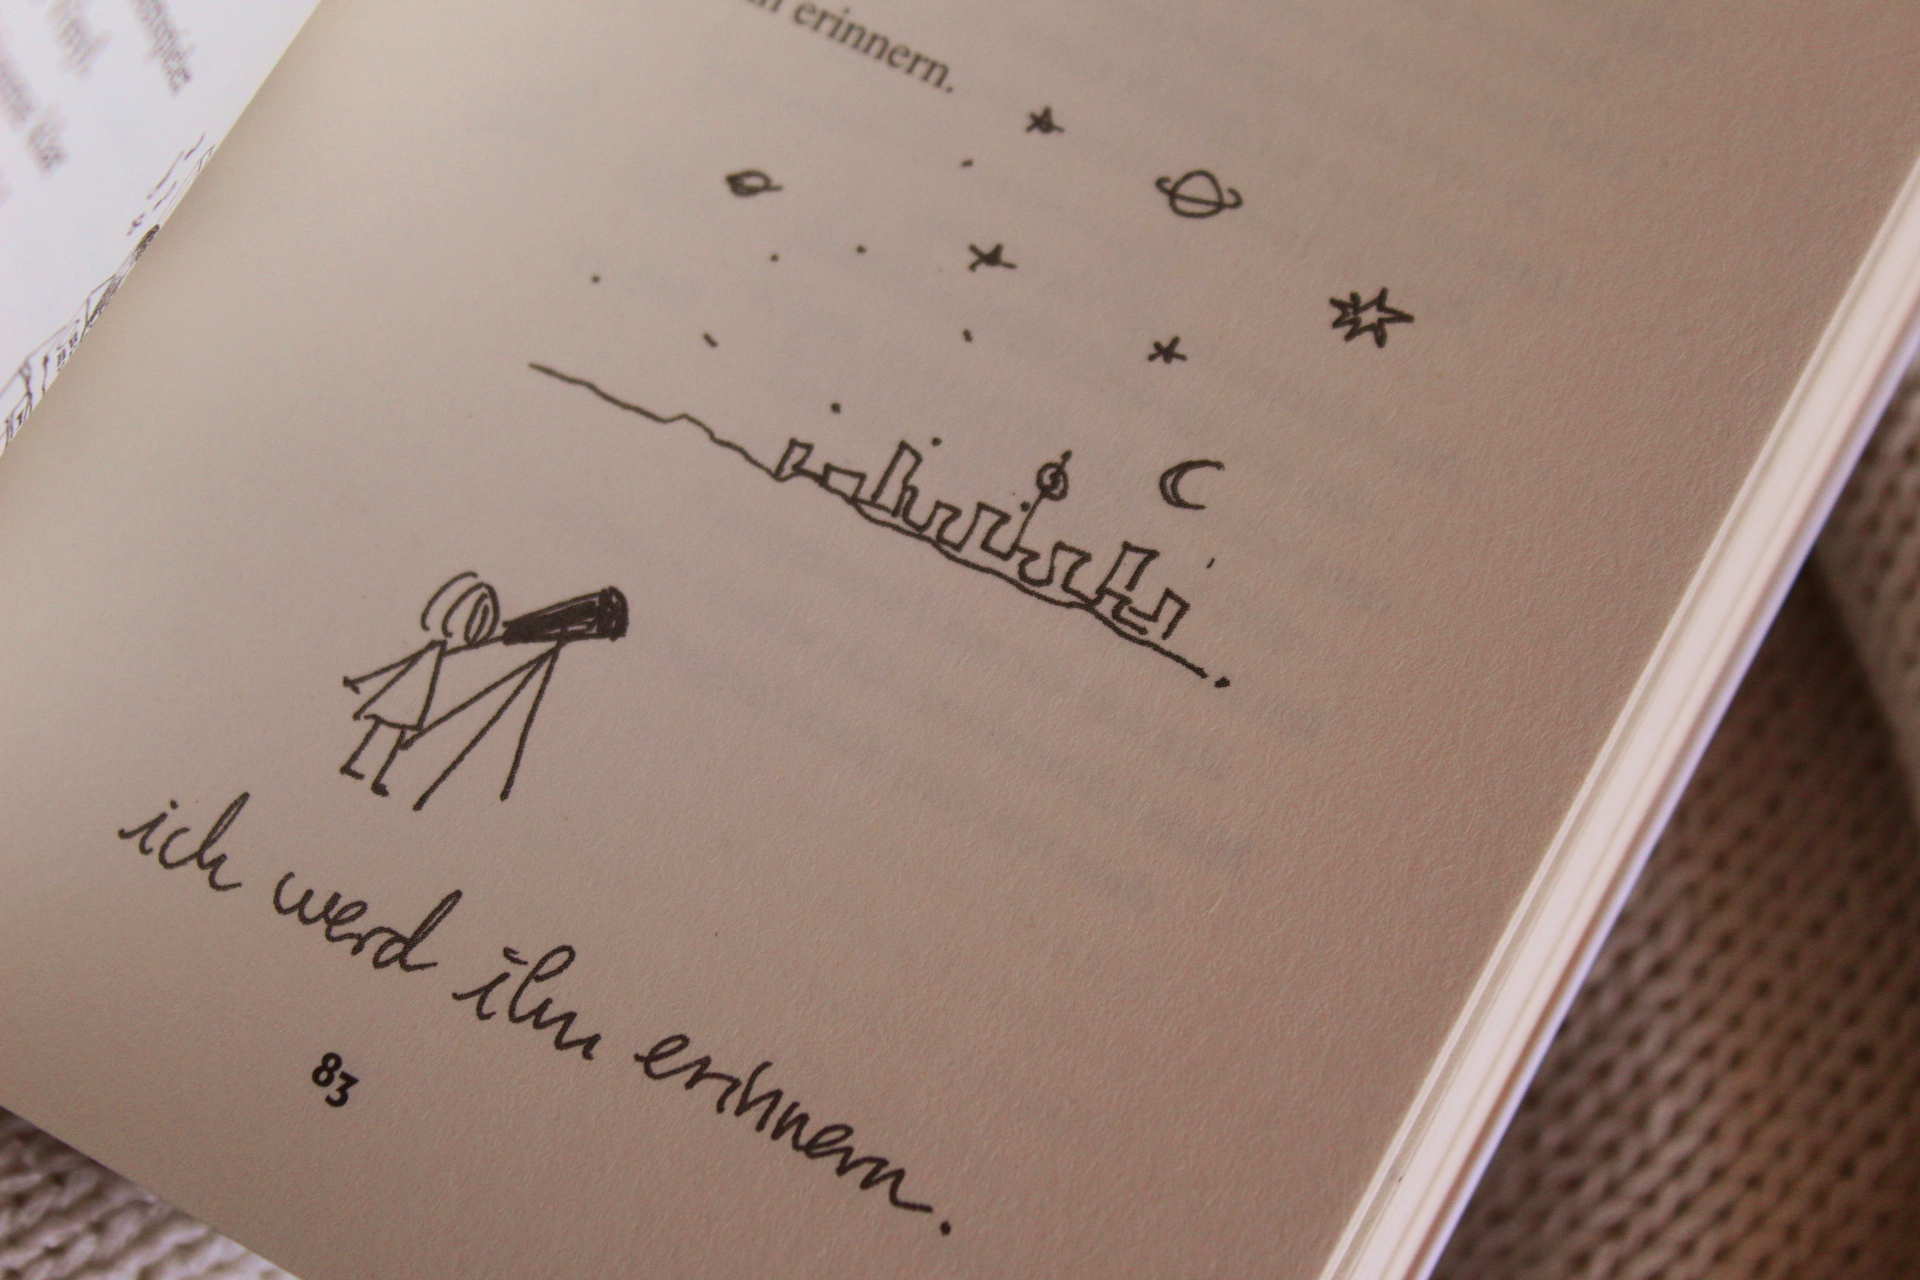 erinnern.
ich werd ihm erinnern.
83